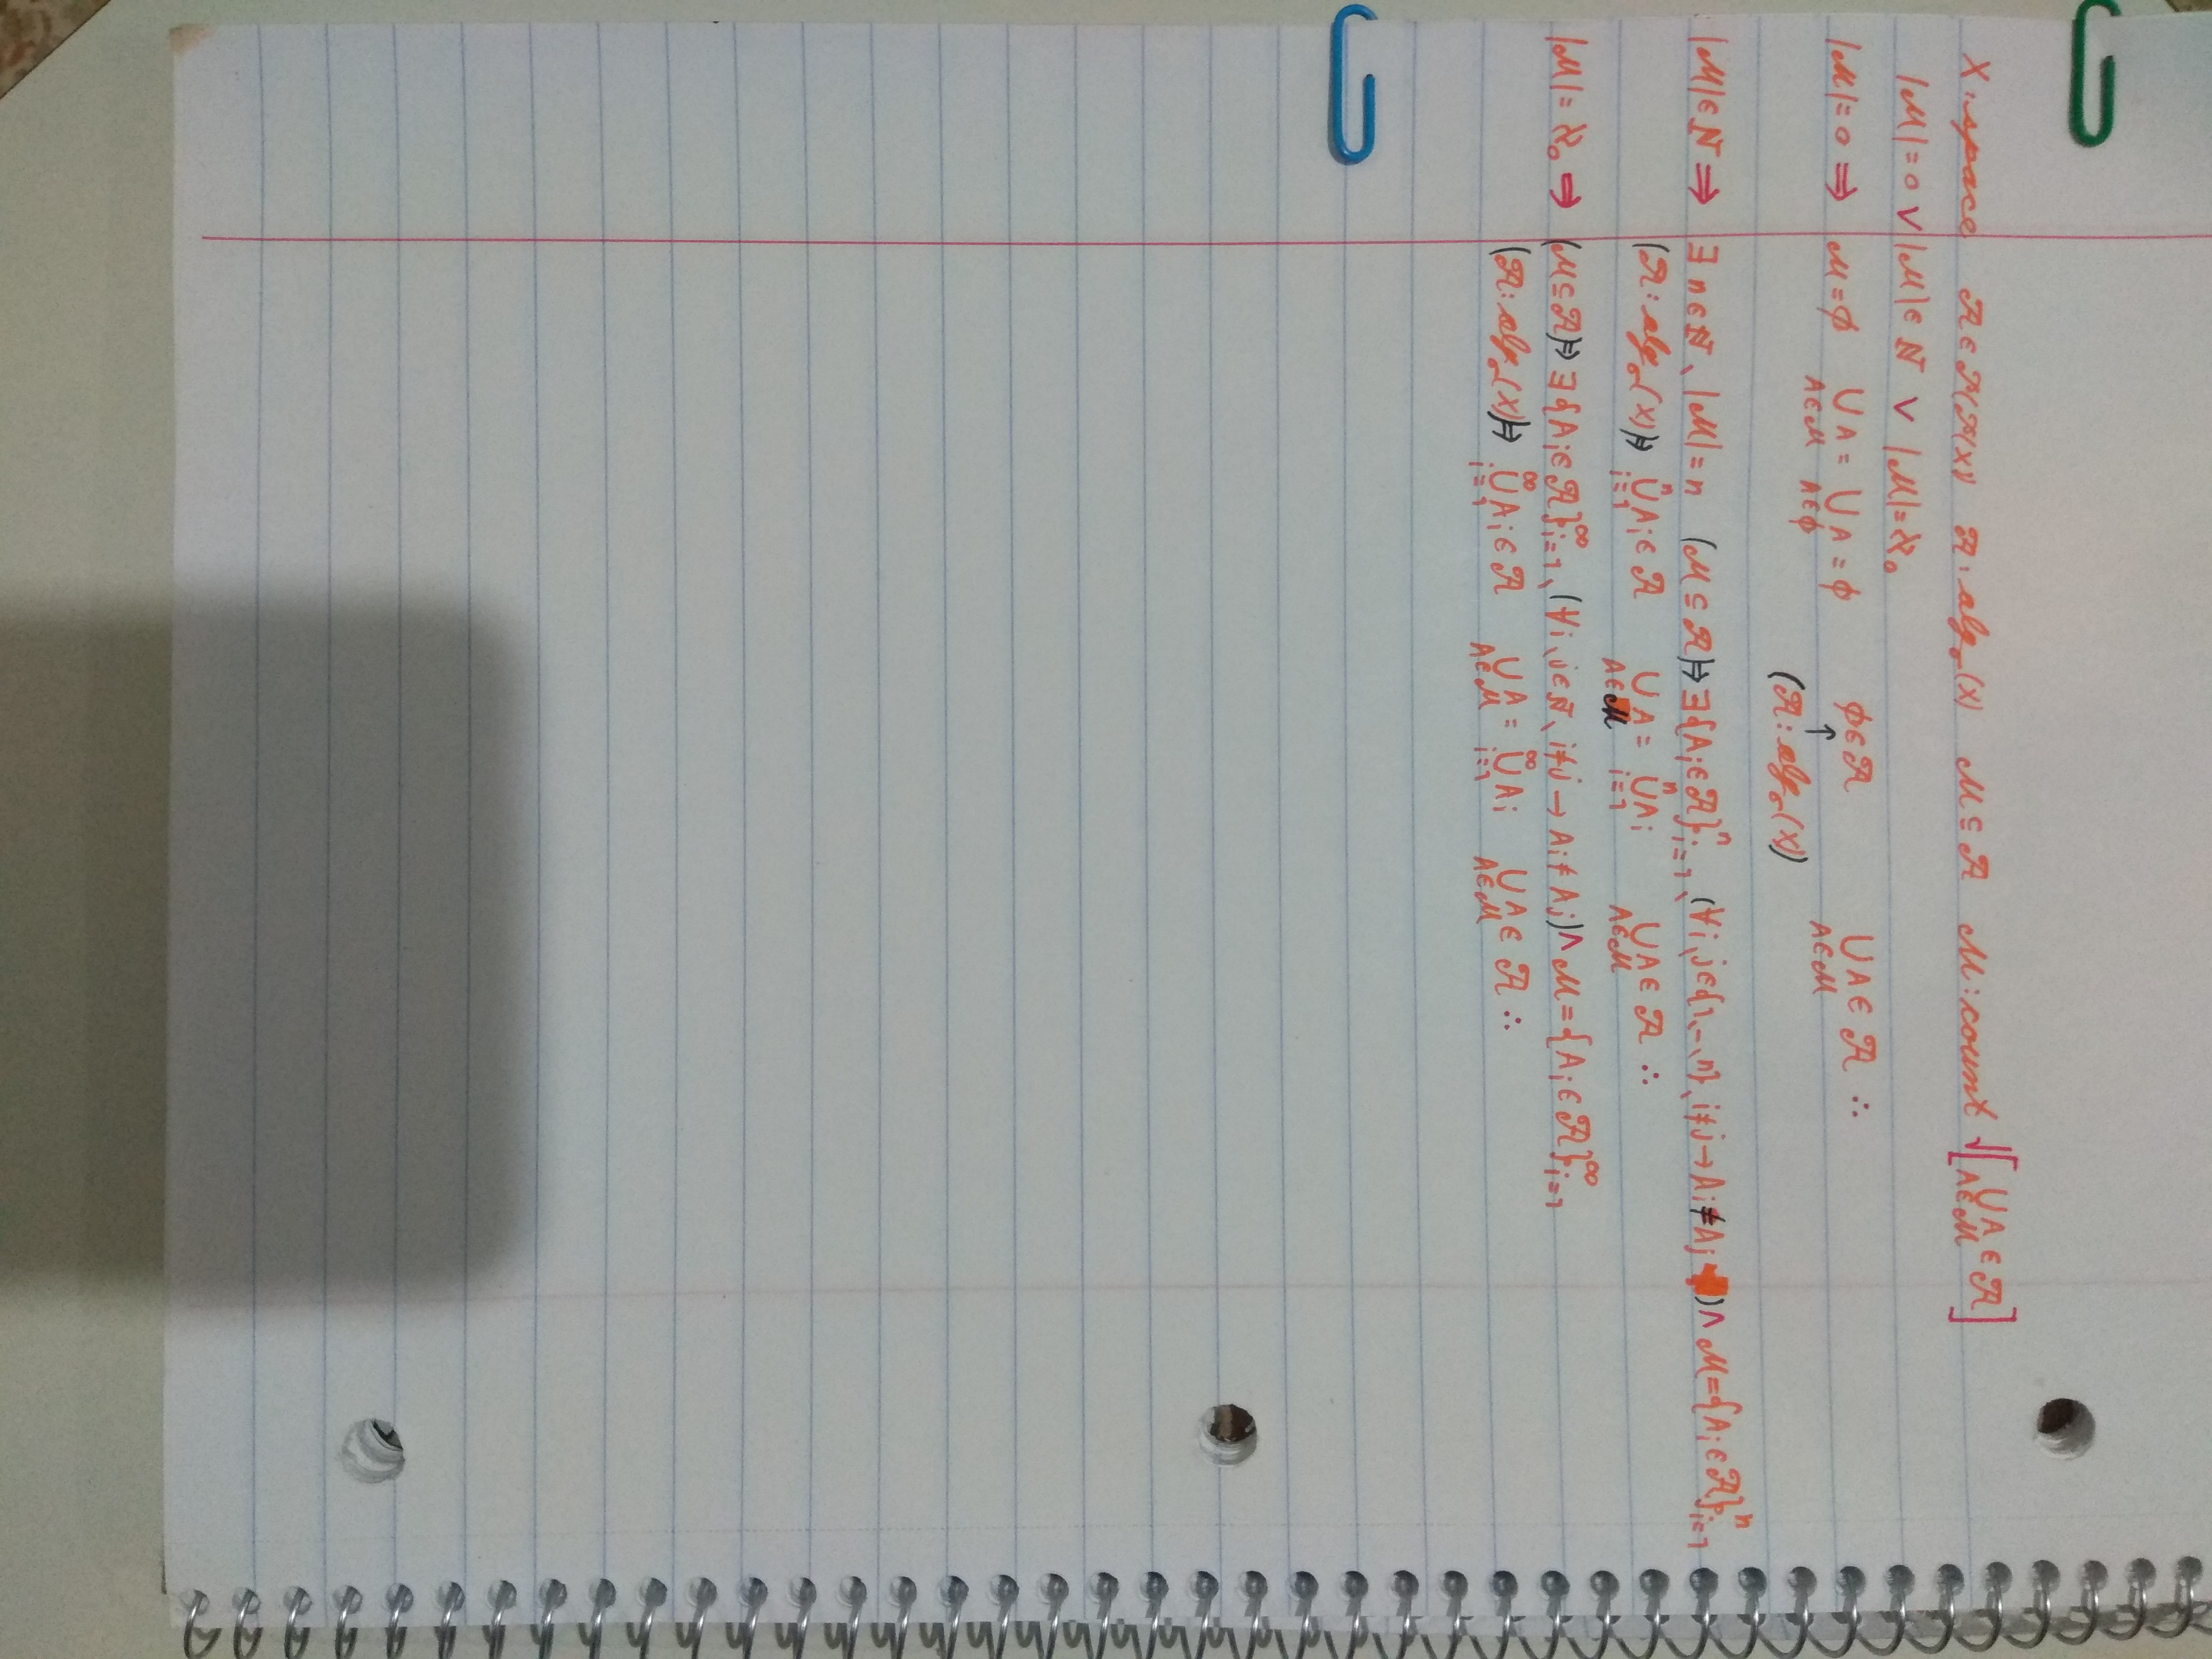 X:space 𝒜∈𝒫(𝒫(X)) 𝒜:alg_σ(X) ℳ⊆𝒜 ℳ:count √[⋃_{A∈ℳ} A∈𝒜]
|ℳ|=0 ∨ |ℳ|∈ℕ ∨ |ℳ|=ℵ₀
|ℳ|=0 ⇒ ℳ=∅ ⋃_{A∈ℳ} A = ⋃_{A∈∅} A = ∅ ∅∈𝒜 ⋃_{A∈ℳ} A∈𝒜 ∴
↑ (𝒜:alg_σ(X))
|ℳ|∈ℕ ⇒ ∃n∈ℕ、|ℳ|=n (ℳ⊆𝒜)⇒∃{A_i∈𝒜}^n_{i=1}、(∀i、j∈{1、…、n}、i≠j→A_i≠A_j)∧ℳ={A_i∈𝒜}^n_{i=1}
(𝒜:alg_σ(X))⇒ ⋃^n_{i=1} A_i∈𝒜 ⋃_{A∈ℳ} A = ⋃^n_{i=1} A_i ⋃_{A∈ℳ} A∈𝒜 ∴
|ℳ|=ℵ₀ ⇒ (ℳ⊆𝒜)⇒∃{A_i∈𝒜}^∞_{i=1}、(∀i、j∈ℕ、i≠j→A_i≠A_j)∧ℳ={A_i∈𝒜}^∞_{i=1}
(𝒜:alg_σ(X))⇒ ⋃^∞_{i=1} A_i∈𝒜 ⋃_{A∈ℳ} A = ⋃^∞_{i=1} A_i ⋃_{A∈ℳ} A∈𝒜 ∴